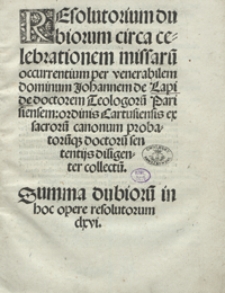 REsolutorium du
biorum circa ce
lebrationem missarū
occurrentium per venerabilem
dominum Johannem de Lapi
de doctorem Teologorū Pari
siensem: ordinis Cartusiensis ex
sacrorū canonum proba
torūqȝ doctorū sen
tentijs diligen
ter collectū.
Summa dubiorū in
hoc opere resolutorum
cxvi.